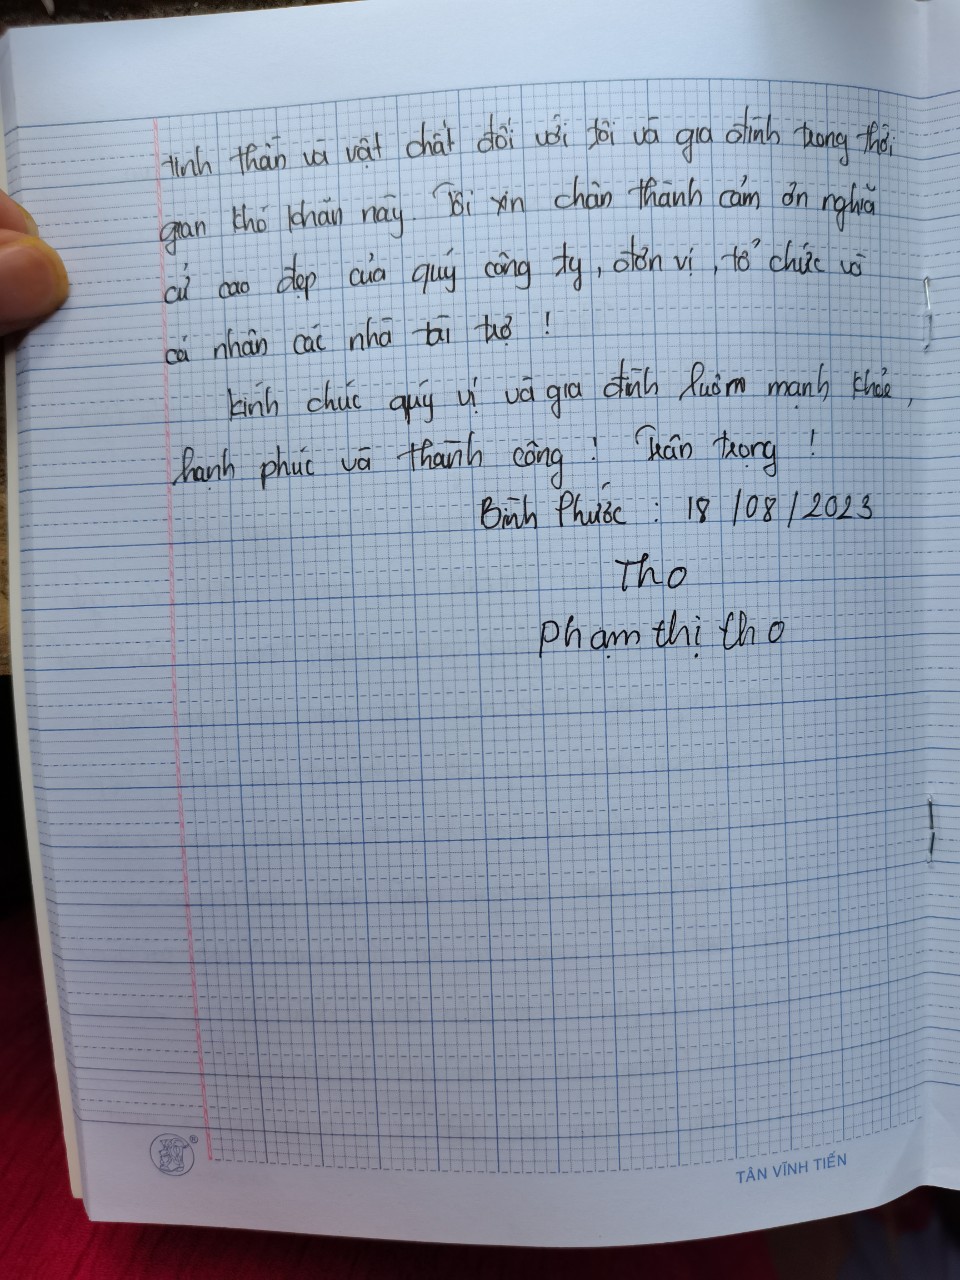 tinh thần và vật chất đối với tôi và gia đình trong thời
gian khó khăn này. Tôi xin chân thành cảm ơn nghĩa
cử cao đẹp của quý công ty, đơn vị, tổ chức và
cá nhân các nhà tài trợ !
kính chúc quý vị và gia đình luôm mạnh khỏe,
hạnh phúc và thành công ! Trân trọng !
Bình Phước : 18 /08 / 2023
Tho
Phạm thị tho
TÂN VĨNH TIẾN